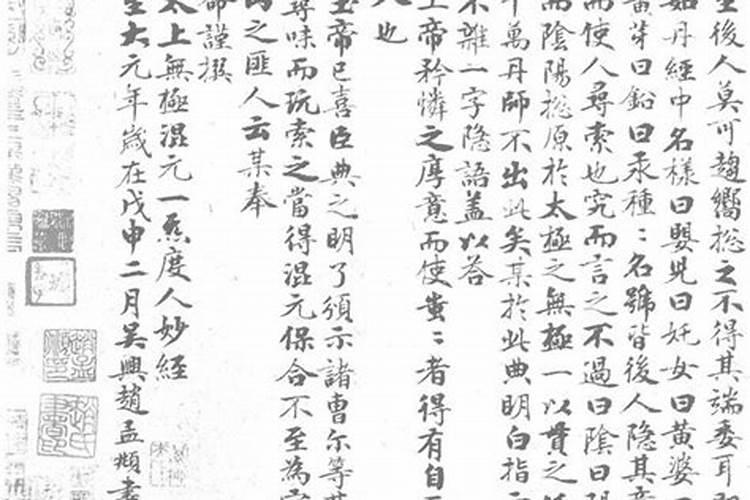 後人莫可趨嚮揔之不得其端委耳
如丹經中名樣曰嬰兒曰奼女曰黄婆
黄芽曰鉛曰汞種：名號皆後人隐其
而使人尋索也究而言之不過曰陰曰陽
而陰陽揔原於太極之無極一以貫之
千萬丹師不出此矣某於此典明白指
不雜一字隐語盖以荅
上帝矜憐之厚意而使蚩：者得有自
也
玉帝已喜臣典之明了須示諸曹尓等其
尋味而玩索之當得混元保合不至為
之匪人云某奉
命謹撰
太上無極混元一炁度人妙經
至大元年歳在戊申二月吴興趙孟頫書